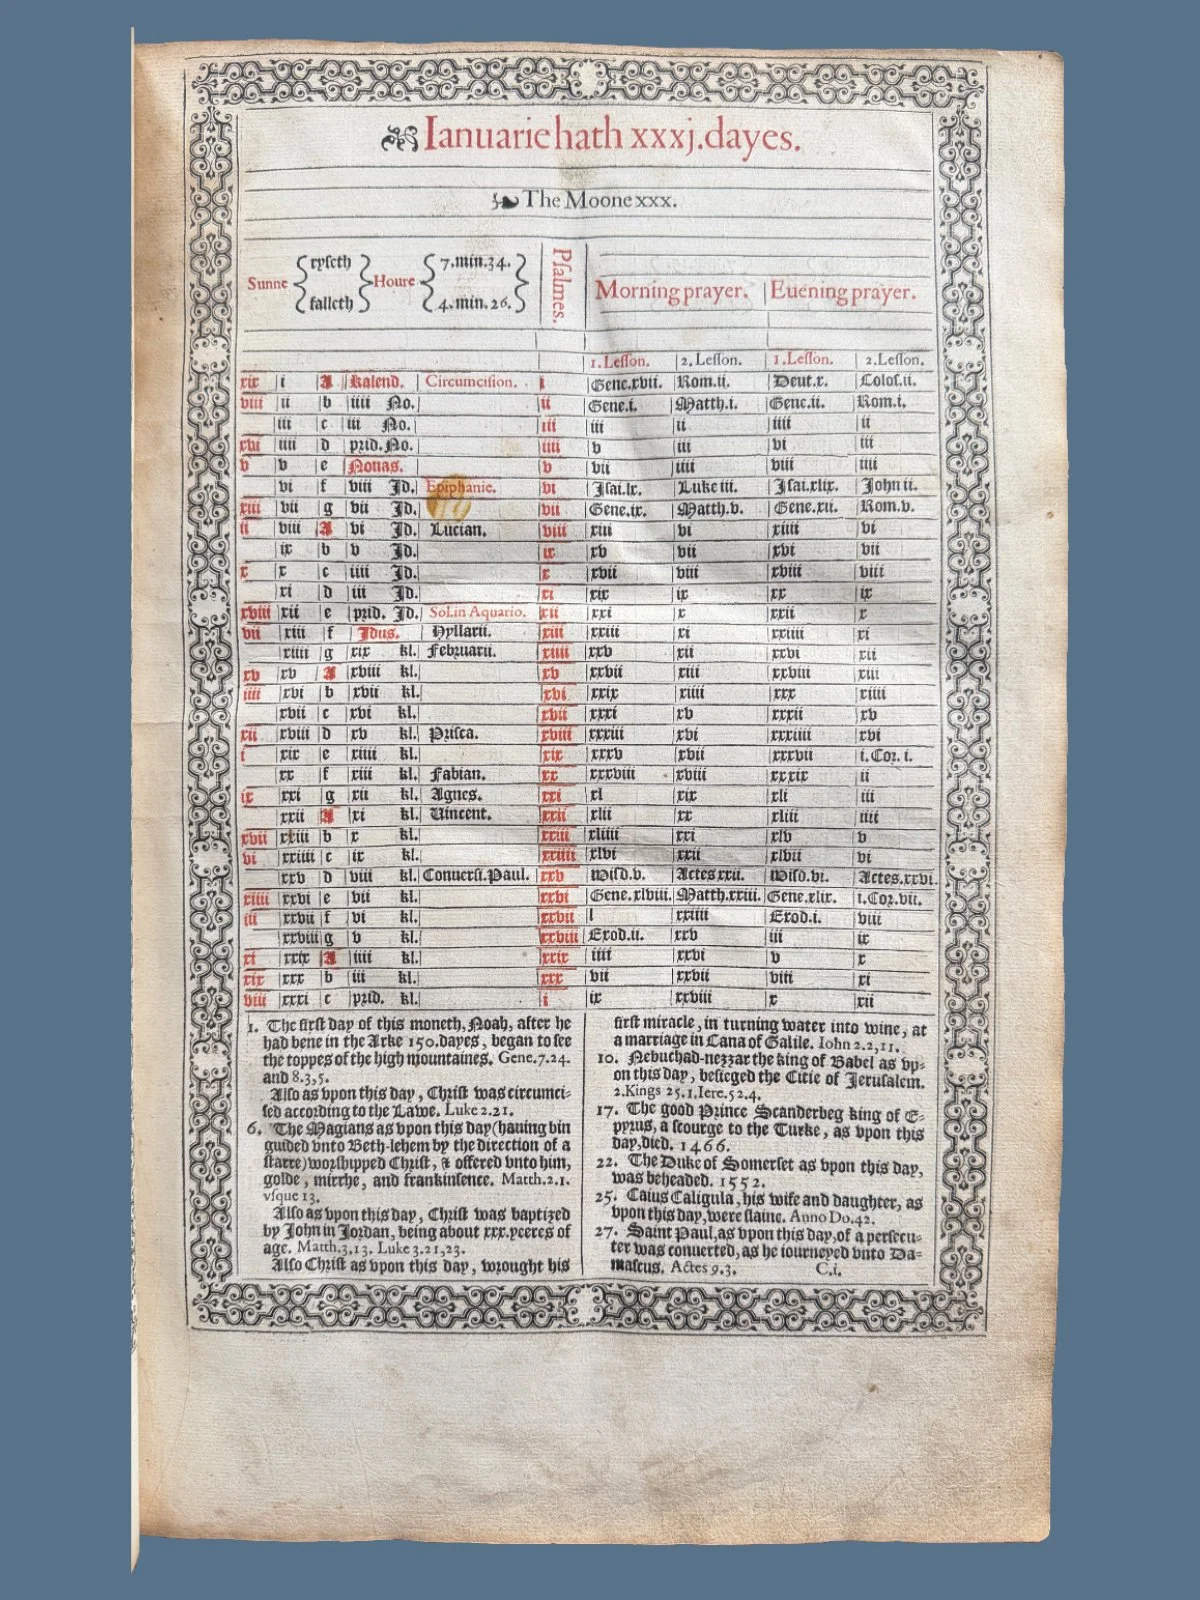 Ianuarie hath xxxj. dayes.
The Moone xxx.
Sunne { ryseth falleth } Houre { 7. min. 34. 4. min. 26. }
Psalmes.
Morning prayer. Euening prayer.
1. Lesson. 2. Lesson. 1. Lesson. 2. Lesson.
xix i A Kalend. Circumcision. i Gene.xvii. Rom.ii. Deut.x. Colos.ii.
viii ii b iiii No. ii Gene.i. Matth.i. Gene.ii. Rom.i.
iii c iii No. iii iii ii iiii ii
xvi iiii d prid. No. iiii v iii vi iii
v v e Nonas. v vii iiii viii iiii
vi f viii Id. Epiphanie. vi Isai.lx. Luke iii. Isai.xlix. John ii.
xiii vii g vii Id. vii Gene.ix. Matth.v. Gene.xii. Rom.v.
ii viii A vi Id. Lucian. viii xiii vi xiiii vi
ix b v Id. ix xv vii xvi vii
x x c iiii Id. x xvii viii xviii viii
xi d iii Id. xi xix ix xx ix
xviii xii e prid. Id. Sol.in Aquario. xii xxi x xxii x
vii xiii f Idus. Hyllarii. xiii xxiii xi xxiiii xi
xiiii g xix kl. Februarii. xiiii xxv xii xxvi xii
xv xv A xviii kl. xv xxvii xiii xxviii xiii
iiii xvi b xvii kl. xvi xxix xiiii xxx xiiii
xvii c xvi kl. xvii xxxi xv xxxii xv
xii xviii d xv kl. Prisca. xviii xxxiii xvi xxxiiii xvi
i xix e xiiii kl. xix xxxv xvii xxxvii i. Cor. i.
xx f xiii kl. Fabian. xx xxxviii xviii xxxix ii
ix xxi g xii kl. Agnes. xxi xl xix xli iii
xxii A xi kl. Uincent. xxii xlii xx xliii iiii
xvii xxiii b x kl. xxiii xliiii xxi xlv v
vi xxiiii c ix kl. xxiiii xlvi xxii xlvii vi
xxv d viii kl. Conuersi. Paul. xxv Wisd.v. Actes.xxii. Wisd.vi. Actes.xxvi.
xiiii xxvi e vii kl. xxvi Gene.xlviii. Matth.xxiii. Gene.xlix. i.Cor.vii.
iii xxvii f vi kl. xxvii l xxiiii Exod.i. viii
xxviii g v kl. xxviii Exod.ii. xxv iii ix
xi xxix A iiii kl. xxix iiii xxvi v x
xix xxx b iii kl. xxx vii xxvii viii xi
viii xxxi c prid. kl. i ix xxviii x xii
1. The first day of this moneth, Noah, after he
had bene in the Arke 150. dayes, began to see
the toppes of the high mountaines. Gene.7.24.
and 8.3,5.
Also as vpon this day, Christ was circumci-
sed according to the Lawe. Luke 2.21.
6. The Magians as vpon this day (hauing bin
guided vnto Beth-lehem by the direction of a
starre) worshipped Christ, & offered vnto him,
golde, mirrhe, and frankinsence. Matth.2.1.
vsque 13.
Also as vpon this day, Christ was baptized
by John in Jordan, being about xxx.yeeres of
age. Matth.3,13. Luke 3.21,23.
Also Christ as vpon this day, wrought his
first miracle, in turning water into wine, at
a marriage in Cana of Galile. Iohn 2.2,11.
10. Nebuchad-nezzar the king of Babel as vp-
on this day, besieged the Citie of Jerusalem.
2.Kings 25.1. Iere.52.4.
17. The good Prince Scanderbeg king of E-
pyrus, a scourge to the Turke, as vpon this
day, died. 1466.
22. The Duke of Somerset as vpon this day,
was beheaded. 1552.
25. Caius Caligula, his wife and daughter, as
vpon this day, were slaine. Anno Do.42.
27. Saint Paul, as vpon this day, of a persecu-
ter was conuerted, as he iourneyed vnto Da-
mascus. Actes 9.3. C.i.